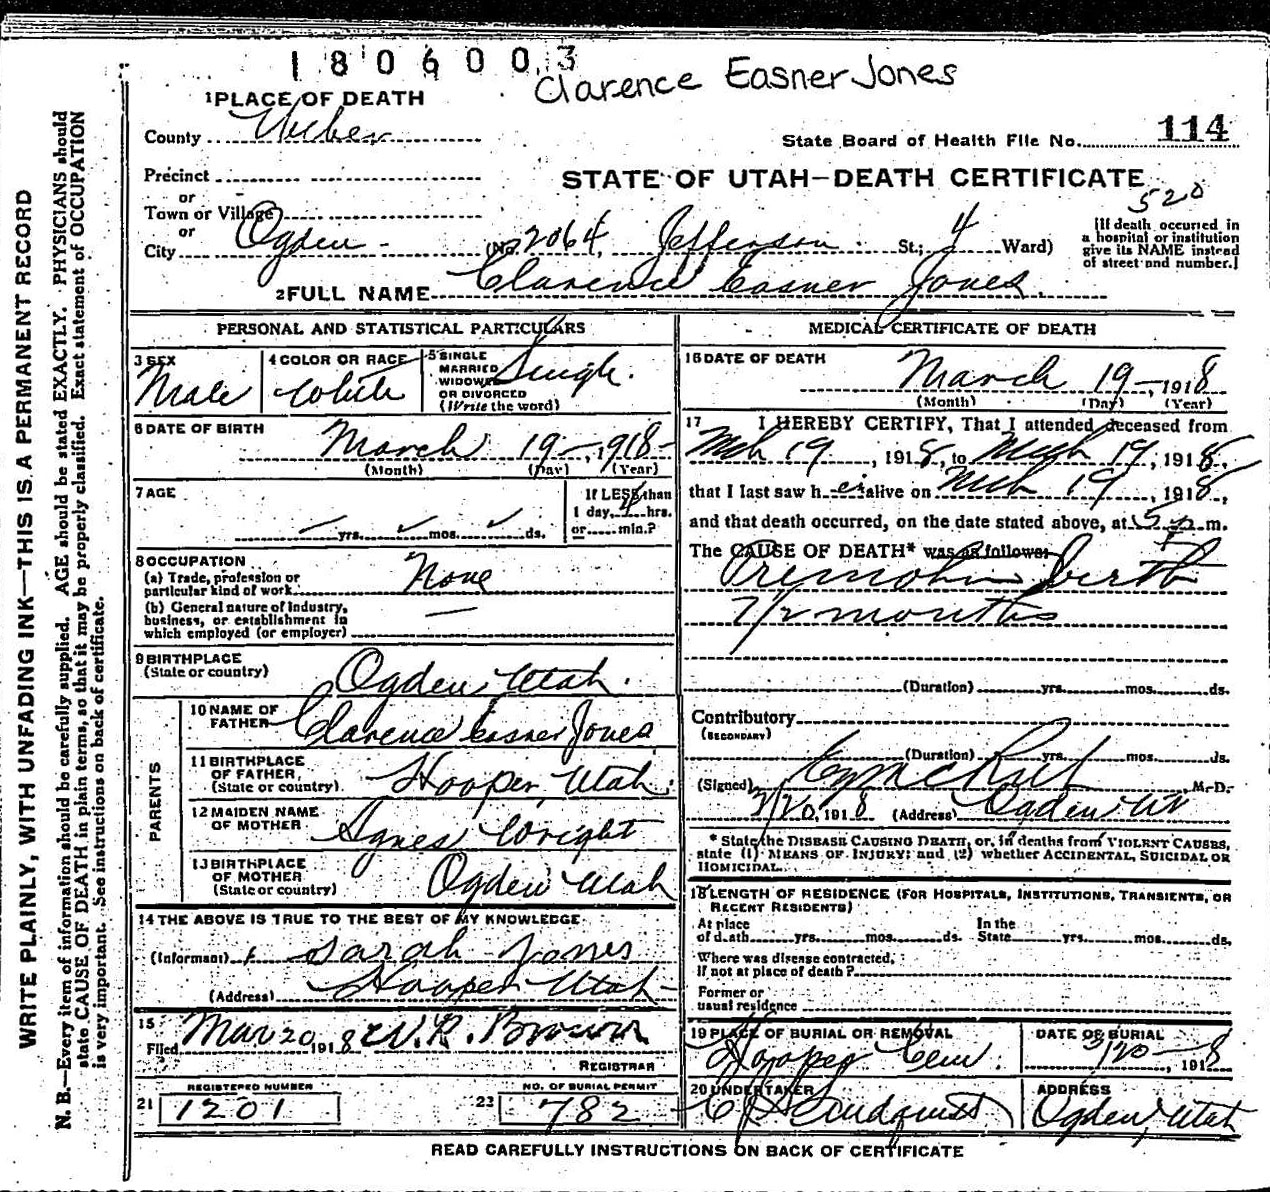 1806003
Clarence Easner Jones
1 PLACE OF DEATH
County Weber
State Board of Health File No. 114
Precinct
STATE OF UTAH—DEATH CERTIFICATE
520
or
Town or Village
or
City Ogden (No. 2064, Jefferson St.; 4 Ward)
[If death occurred in a hospital or institution give its NAME instead of street and number.]
2 FULL NAME Clarence Easner Jones
PERSONAL AND STATISTICAL PARTICULARS
3 SEX Male
4 COLOR OR RACE White
5 SINGLE MARRIED WIDOWED OR DIVORCED (Write the word) Single.
6 DATE OF BIRTH March 19—, 1918—
(Month) (Day) (Year)
7 AGE
yrs. mos. ds.
If LESS than 1 day, 4 hrs. or min.?
8 OCCUPATION
(a) Trade, profession or particular kind of work. None
(b) General nature of industry, business, or establishment in which employed (or employer) —
9 BIRTHPLACE (State or country) Ogden Utah.
PARENTS
10 NAME OF FATHER Clarence Easner Jones
11 BIRTHPLACE OF FATHER, (State or country) Hooper, Utah.
12 MAIDEN NAME OF MOTHER Agnes Wright
13 BIRTHPLACE OF MOTHER (State or country) Ogden Utah
14 THE ABOVE IS TRUE TO THE BEST OF MY KNOWLEDGE
(Informant) Sarah Jones
(Address) Hooper Utah
15 Filed Mar 20 1918 W. R. Brown
REGISTRAR
REGISTERED NUMBER
21 1201
NO. OF BURIAL PERMIT
23 782
MEDICAL CERTIFICATE OF DEATH
16 DATE OF DEATH March 19—1918
(Month) (Day) (Year)
17 I HEREBY CERTIFY, That I attended deceased from
Mch 19, 1918, to Mch 19, 1918,
that I last saw h alive on Mch 19, 1918,
and that death occurred, on the date stated above, at 5 p m.
The CAUSE OF DEATH* was as follows:
birth
7 1/2 months
(Duration) yrs. mos. ds.
Contributory
(SECONDARY)
(Duration) yrs. mos. ds.
(Signed) M.D.
3/20, 1918 (Address) Ogden Ut
* State the DISEASE CAUSING DEATH, or, in deaths from VIOLENT CAUSES, state (1) MEANS OF INJURY; and (2) whether ACCIDENTAL, SUICIDAL OR HOMICIDAL.
18 LENGTH OF RESIDENCE (FOR HOSPITALS, INSTITUTIONS, TRANSIENTS, OR RECENT RESIDENTS)
At place of death yrs. mos. ds. In the State yrs. mos. ds.
Where was disease contracted, if not at place of death?
Former or usual residence
19 PLACE OF BURIAL OR REMOVAL Hooper Cem.
DATE OF BURIAL 3/20—, 1918
20 UNDERTAKER Lindquist
ADDRESS Ogden, Utah
READ CAREFULLY INSTRUCTIONS ON BACK OF CERTIFICATE
WRITE PLAINLY, WITH UNFADING INK—THIS IS A PERMANENT RECORD
N. B.—Every item of information should be carefully supplied. AGE should be stated EXACTLY. PHYSICIANS should
state CAUSE OF DEATH in plain terms, so that it may be properly classified. Exact statement of OCCUPATION
is very important. See instructions on back of certificate.